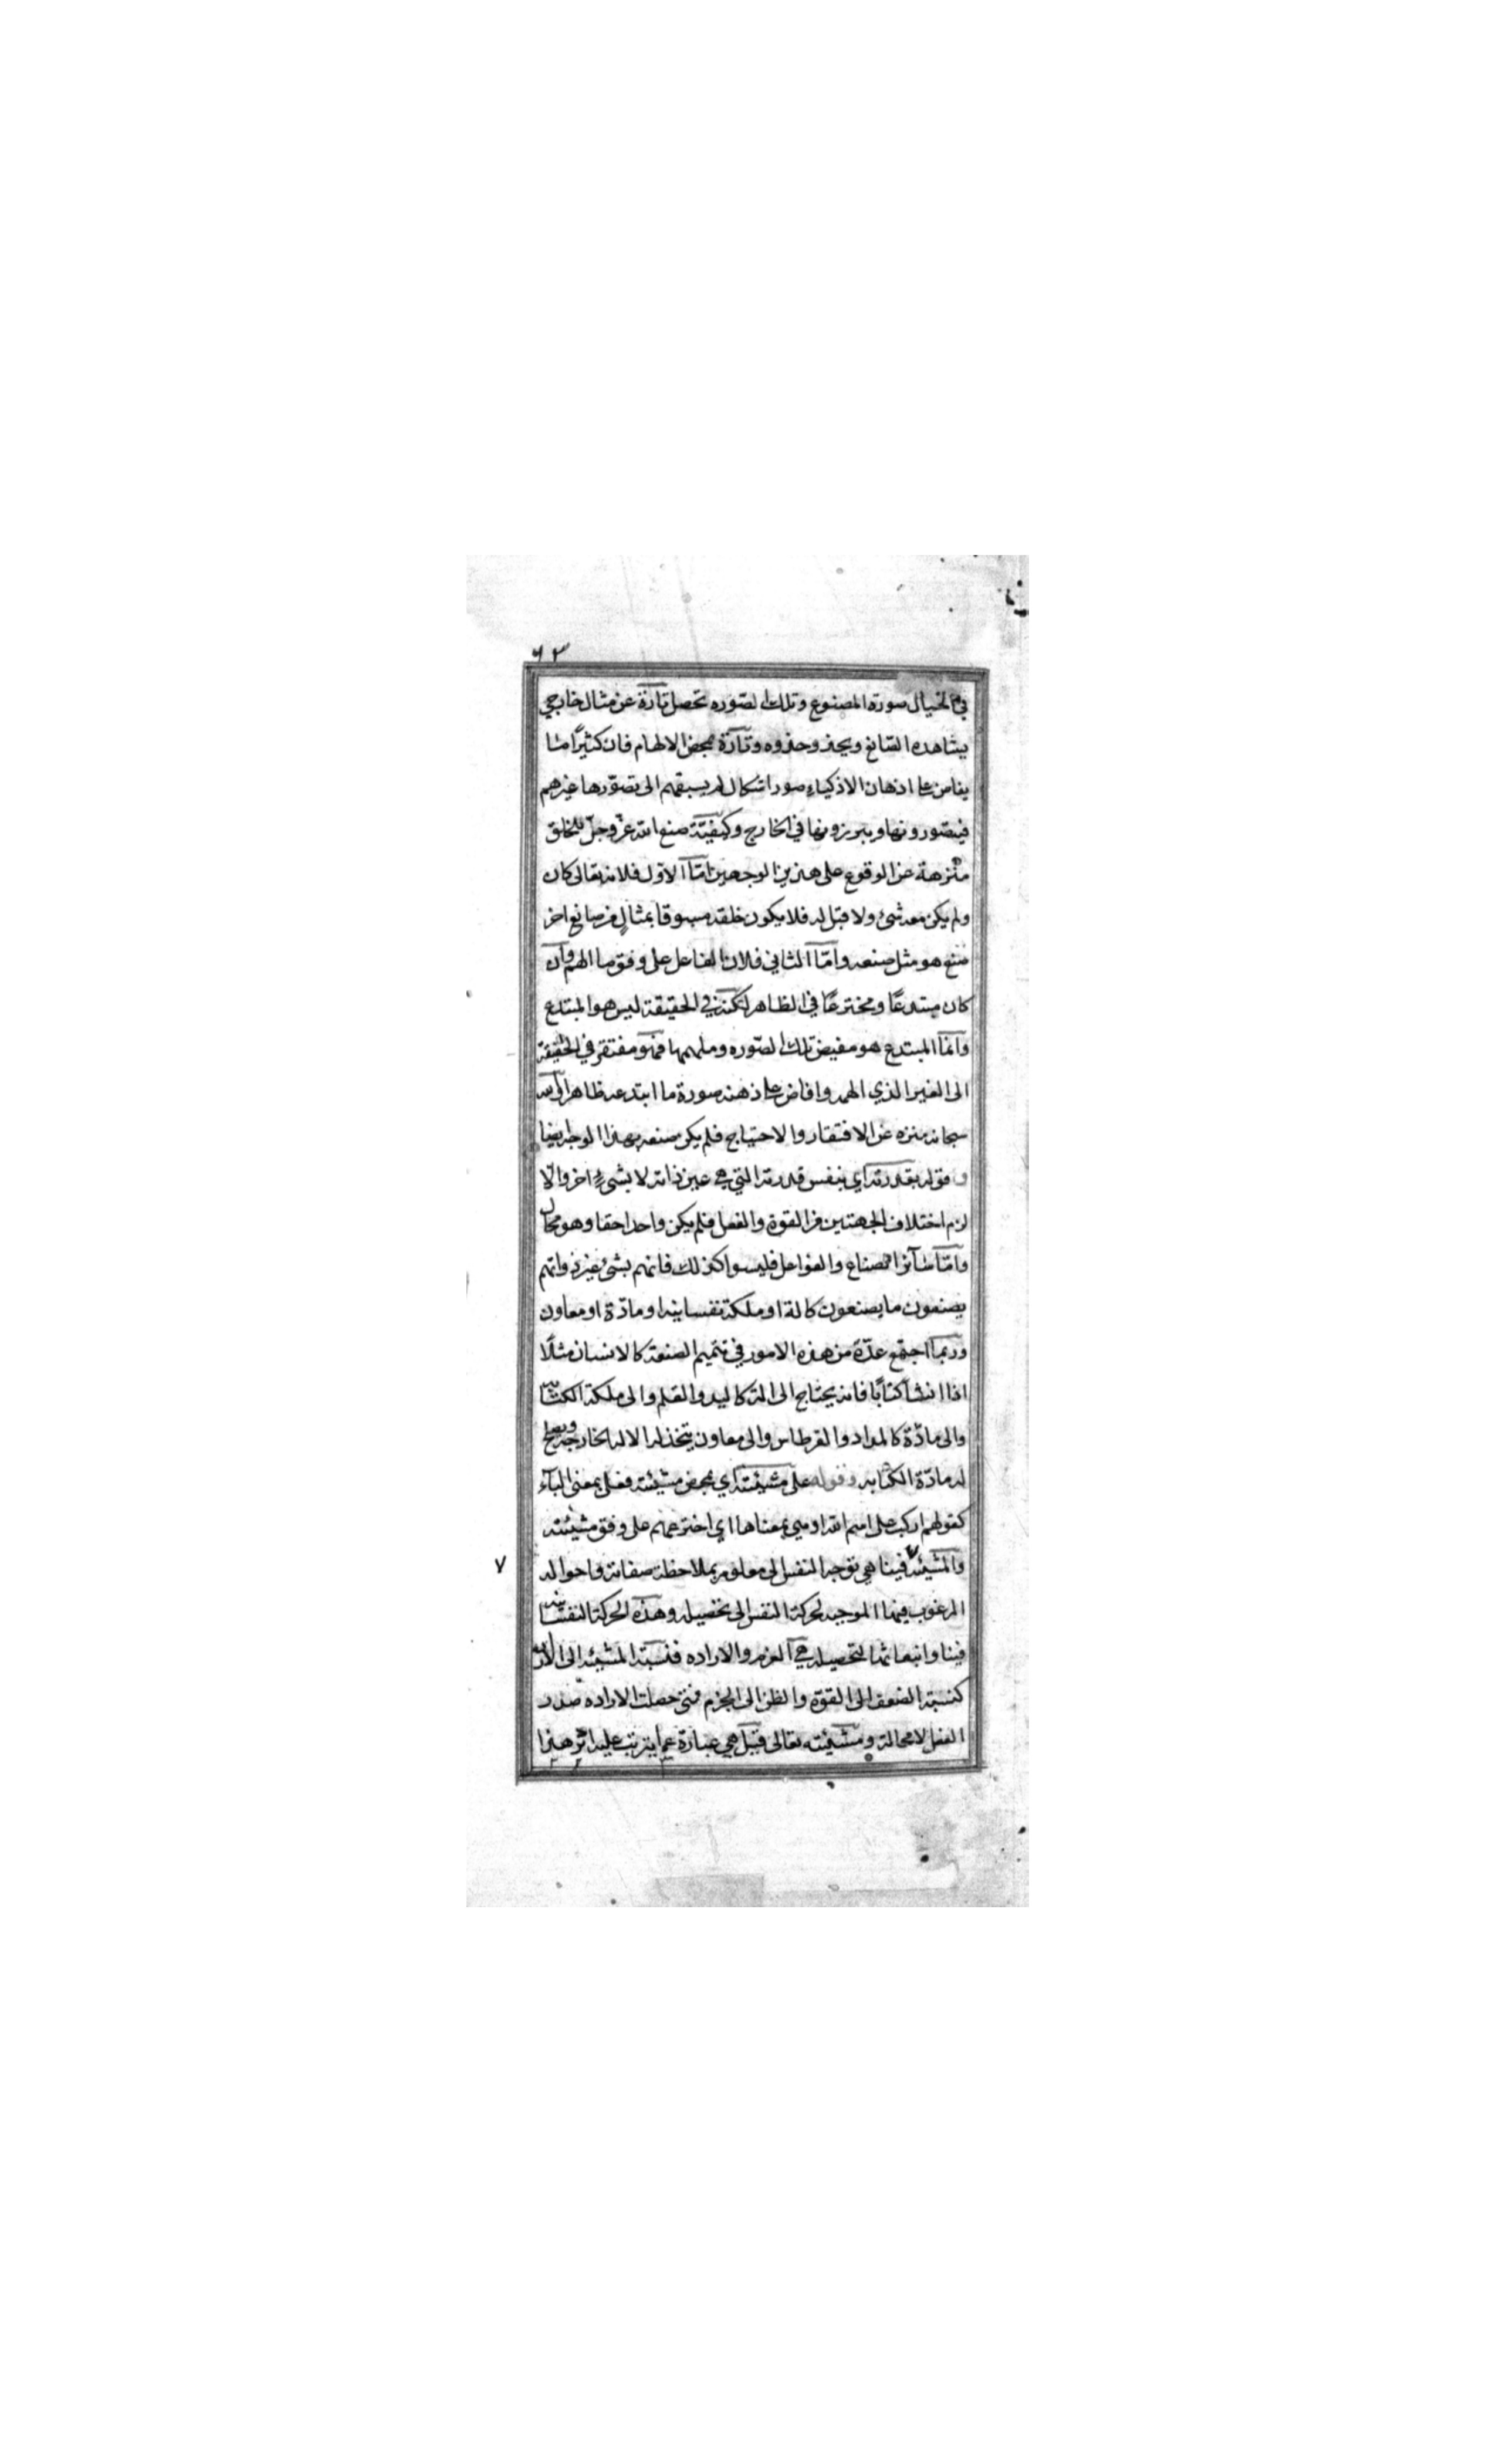 ٦٣
في الخيال صورة المصنوع وتلك الصوره تحصل تارة عن مثال خارجي
يشاهده الصانع ويحذو حذوه وتارة بمحض الالهام فان كثيرًا ما
يفاض على اذهان الاذكياء صور اشكال لم يسبقهم الى تصوّرها غيرهم
فيتصورونها ويبرزونها في الخارج وكيفيّة صنع الله عزّ وجلّ للخلق
منزهة عن الوقوع على هذين الوجهين امّا الاول فلانه تعالى كان
ولم يكن معه شئ ولا قبله فلا يكون خلقه مسبوقا بمثالٍ من صانع اخر
صنع هو مثل صنعه وامّا الثاني فلان الفاعل على وفق ما الهم وان
كان مبتدعًا ومخترعًا في الظاهر لكنه في الحقيقة ليس هو المبتدع
وانما المبتدع هو مفيض تلك الصوره وملهمها فهو مفتقر في الحقيقة
الى الغير الذي الهمه وافاض على ذهنه صورة ما ابتدعه ظاهرا والله
سبحانه منزه عن الافتقار والاحتياج فلم يكن صنعه بهذا الوجه ايضا
وقوله بقدرته اي بنفس قدرته التي هي عين ذاته لا بشيءٍ اخر والّا
لزم اختلاف الجهتين من القوة والفعل فلم يكن واحدا حقا وهو محال
وامّا سائر الصناع والفواعل فليسوا كذلك فانهم بشئ غير ذواتهم
يصنعون ما يصنعون كالة او ملكة نفسانيه او مادّة او معاون
وربما اجتمع عدّة من هذه الامور في تتميم الصنعة كالانسان مثلًا
اذا انشا كتابًا فانه يحتاج الى الة كاليد والقلم والى ملكة الكتابة
والى مادّة كالمداد والقرطاس والى معاون يتخذ له الاله الخارجه ويصلح
له مادّة الكتابه وقوله على مشيئته اي بمحض مشيئته فعلى بمعنى الباء
كقولهم اركب على اسم الله او هي بمعناها اي اخترعهم على وفق مشيئته
٧ والمشيئه فينا هي توجه النفس الى معلوم بملاحظة صفاته واحواله
المرغوب فيها الموجبه لحركة النفس الى تحصيله وهذه الحركة النفسانيه
فينا وانبعاثها لتحصيله هي العزم والاراده فنسبة المشيئه الى الارادة
كنسبة الضعف الى القوة والظن الى الجزم فمتى حصلت الاراده صدر
الفعل لا محالة ومشيئته تعالى قيل هي عبارة عما يترتب عليه اثر هذا